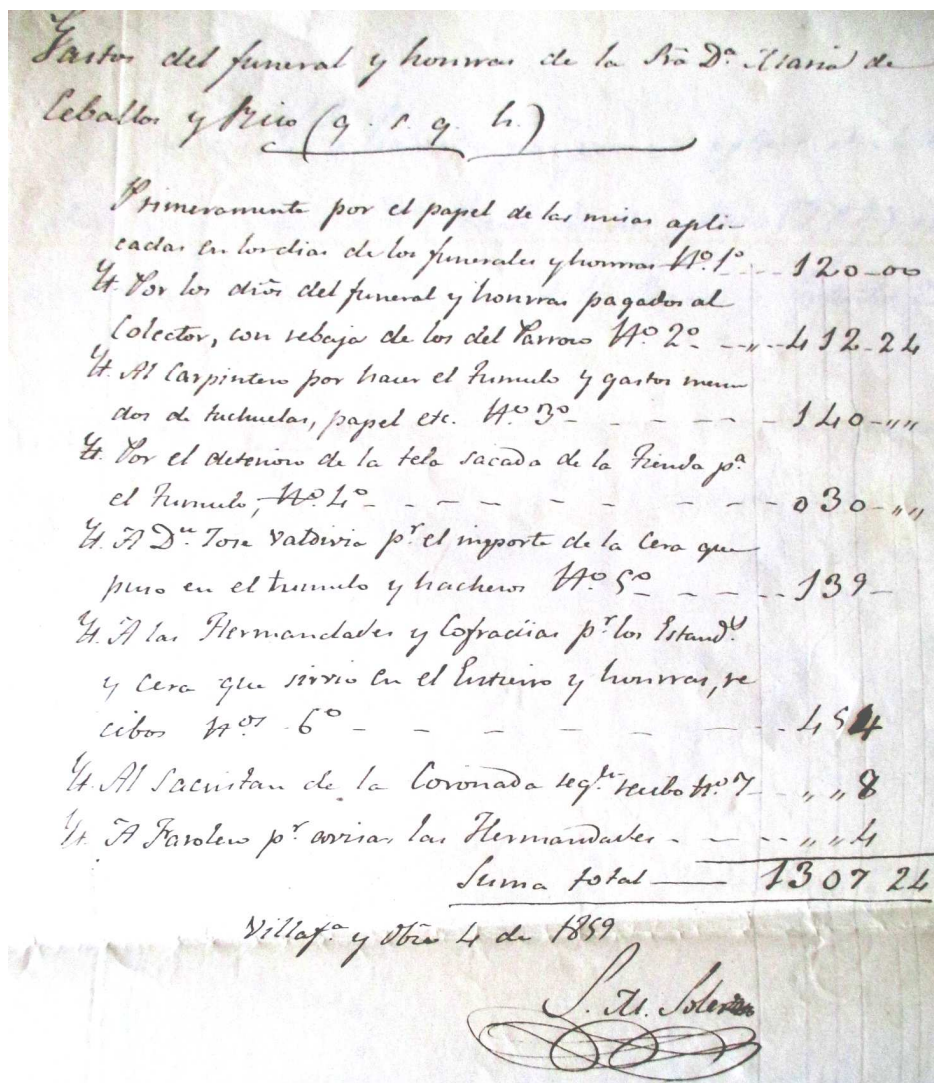 Gastos del funeral y honrras de la Sra Dª. Maria de
Ceballos y Rico (q. s. g. h.)
Primeramente por el papel de las misas apli-
cadas en los dias de los funerales y honrras Nº. 1º -- 120-00
Yt. Por los dros del funeral y honrras pagados al
Colector, con rebaja de los del Parroco Nº 2º - -„-- 412-24
Yt. Al Carpintero por hacer el tumulo y gastos menu
dos de tachuelas, papel etc. Nº 3º - - - - - - 140-„„
Yt. Por el deterioro de la tela sacada de la tienda pª.
el tumulo, Nº 4º - - - - - - - - - 030-„„
Yt. A Dn. Jose Valdivia pr. el importe de la Cera que
puso en el tumulo y hacheros Nº 5º - - - - 139-
Yt. A las Hermandades y Cofracias pr. los Estands.
y Cera que sirvio en el Entierro y honrras, re
cibos Nos. 6º - - - - - - - - - 454
Yt. Al Sacristan de la Coronada segn. recibo Nº 7 - „„8
Yt. A Farolero pr. avisar las Hermandades - - - „„4
Suma total — 1307 24
Villafª. y Obre 4 de 1859
S. M.